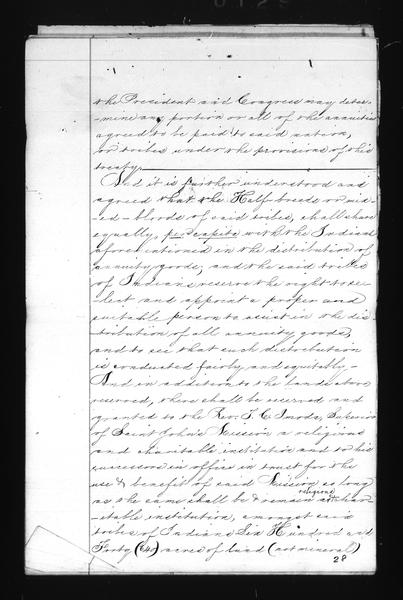 the President and Congress may deter-
-mine any portion or all of the annuities
agreed to be paid to said nation,
or tribes under the provisions of this
treaty.
And it is further understood and
agreed that the Half-breeds or mix-
-ed-bloods of said tribes, shall share
equally, per capita with the Indians
aforementioned in the distribution of
annuity goods, and the said tribes
of Indians reserve the right to se-
-lect and appoint a proper and
suitable person to assist in the dis-
-tribution of all annuity goods,
and to see that such distribution
is conducted fairly and equitably-
And in addition to the lands above
reserved, there shall be reserved and
granted to the Rev. J. C. Imoda, Superior
of Saint John's Mission, a religious
and charitable institution and to his
successors in office in trust for the
use & benefit of said Mission as long
as the same shall be & remain a religious char-
-itable institution, amongst said
tribes of Indians Six Hundred and
Forty (640) acres of land (not mineral)
28